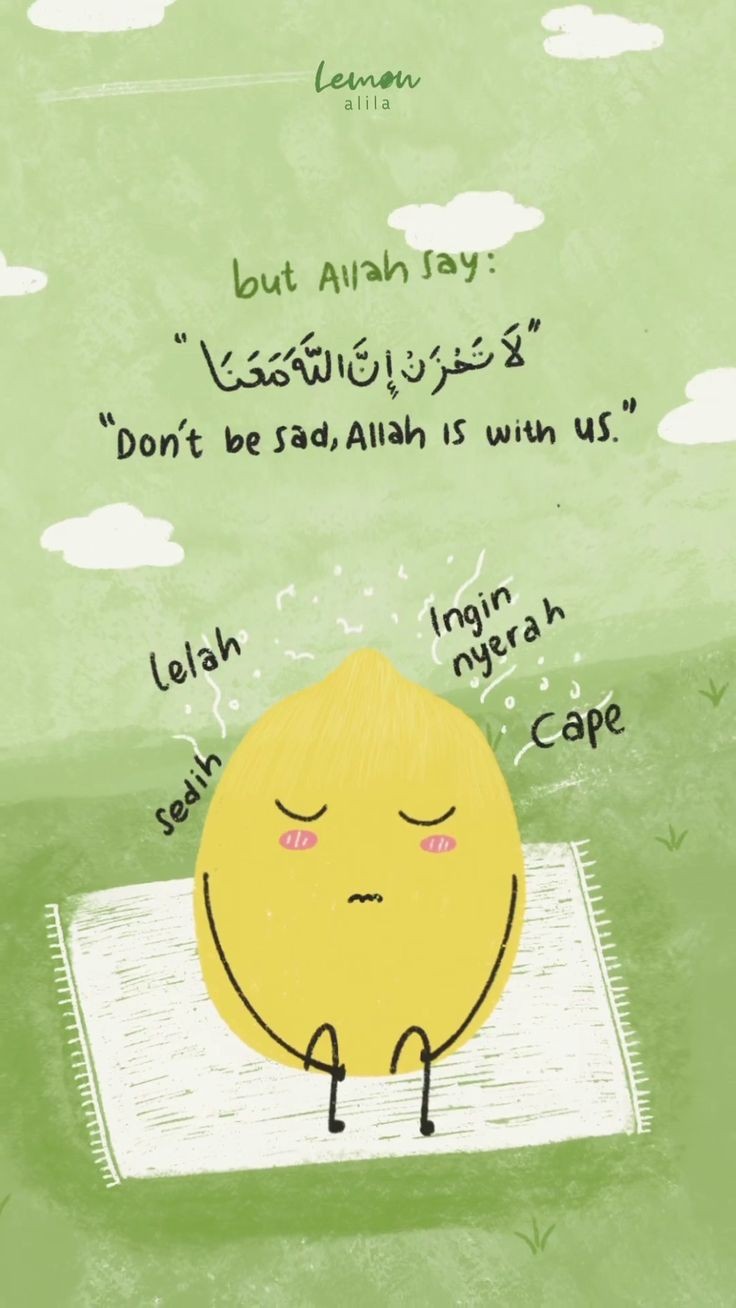 Lemon
alila
but Allah say:
"لَا تَحْزَنْ إِنَّ اللَّهَ مَعَنَا"
"Don't be sad, Allah is with us."
Ingin
nyerah
lelah
Cape
sedih